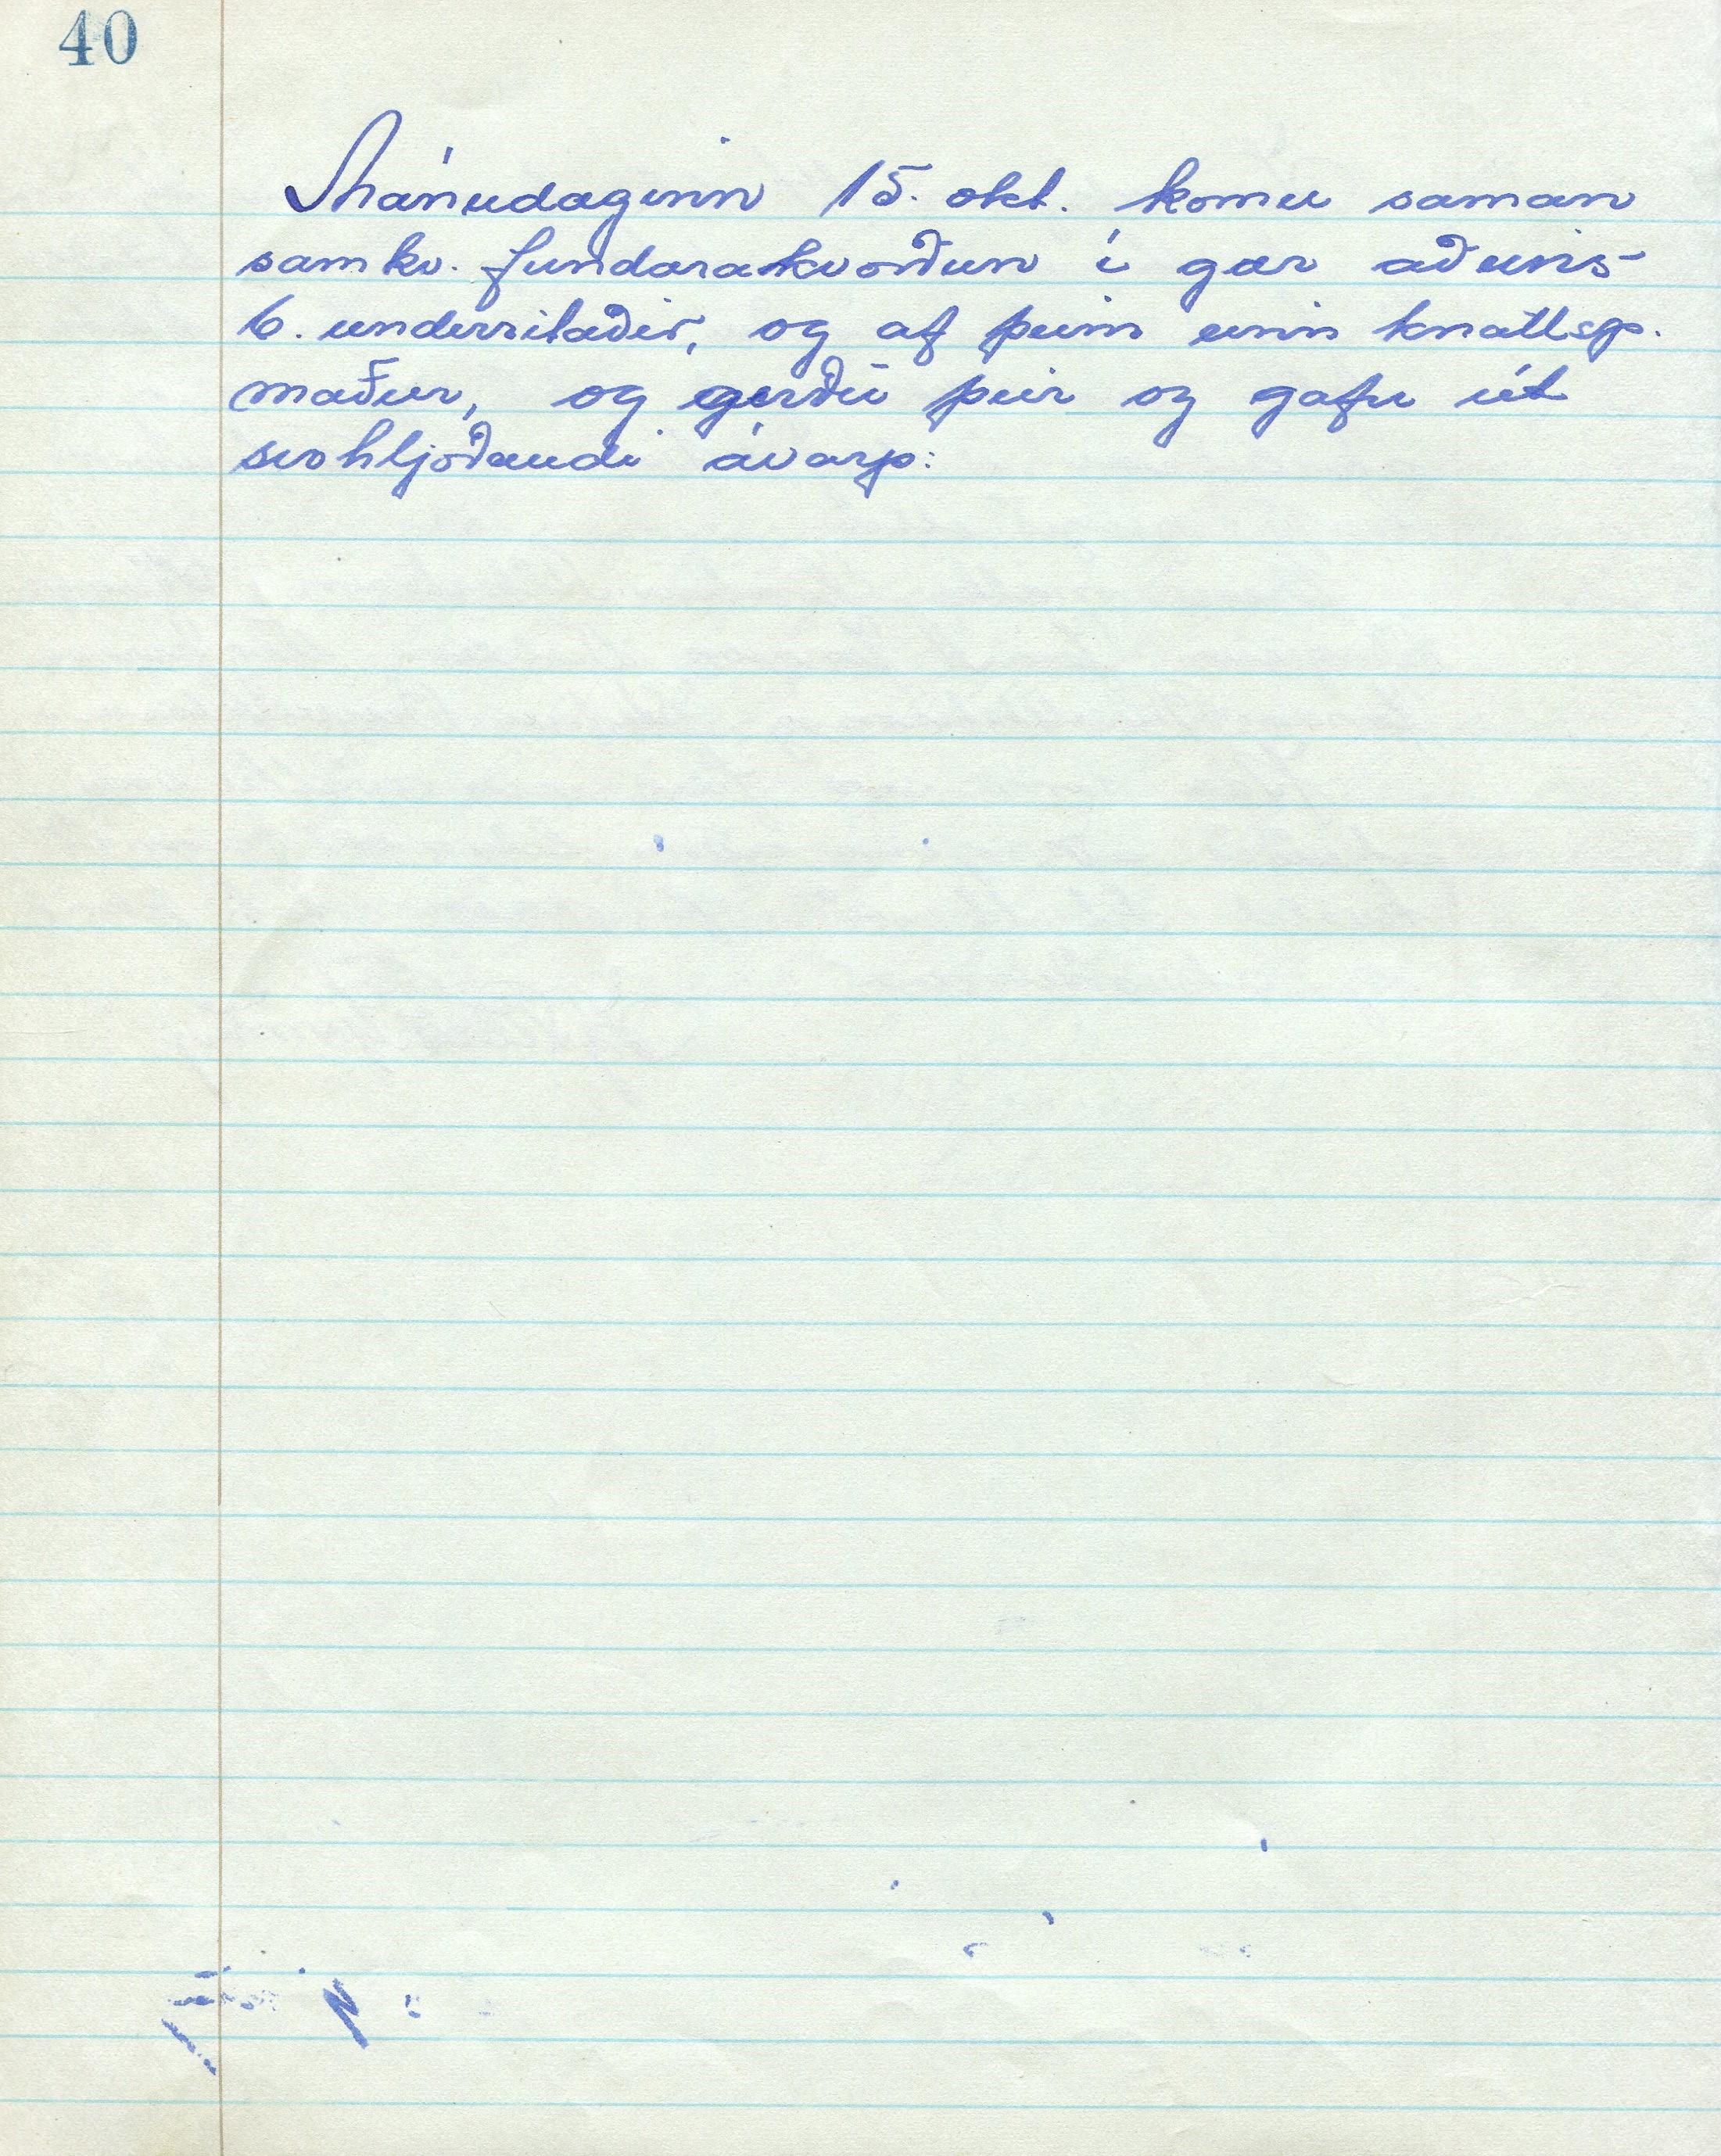 40
Mánudaginn 15. okt. komu saman
samkv. fundarakvorðun í gær aðeins
6. undirritaðir, og af þeim einn knattsp.
maður, og gerðu þeir og gafu út
svohljóðandi ávarp: